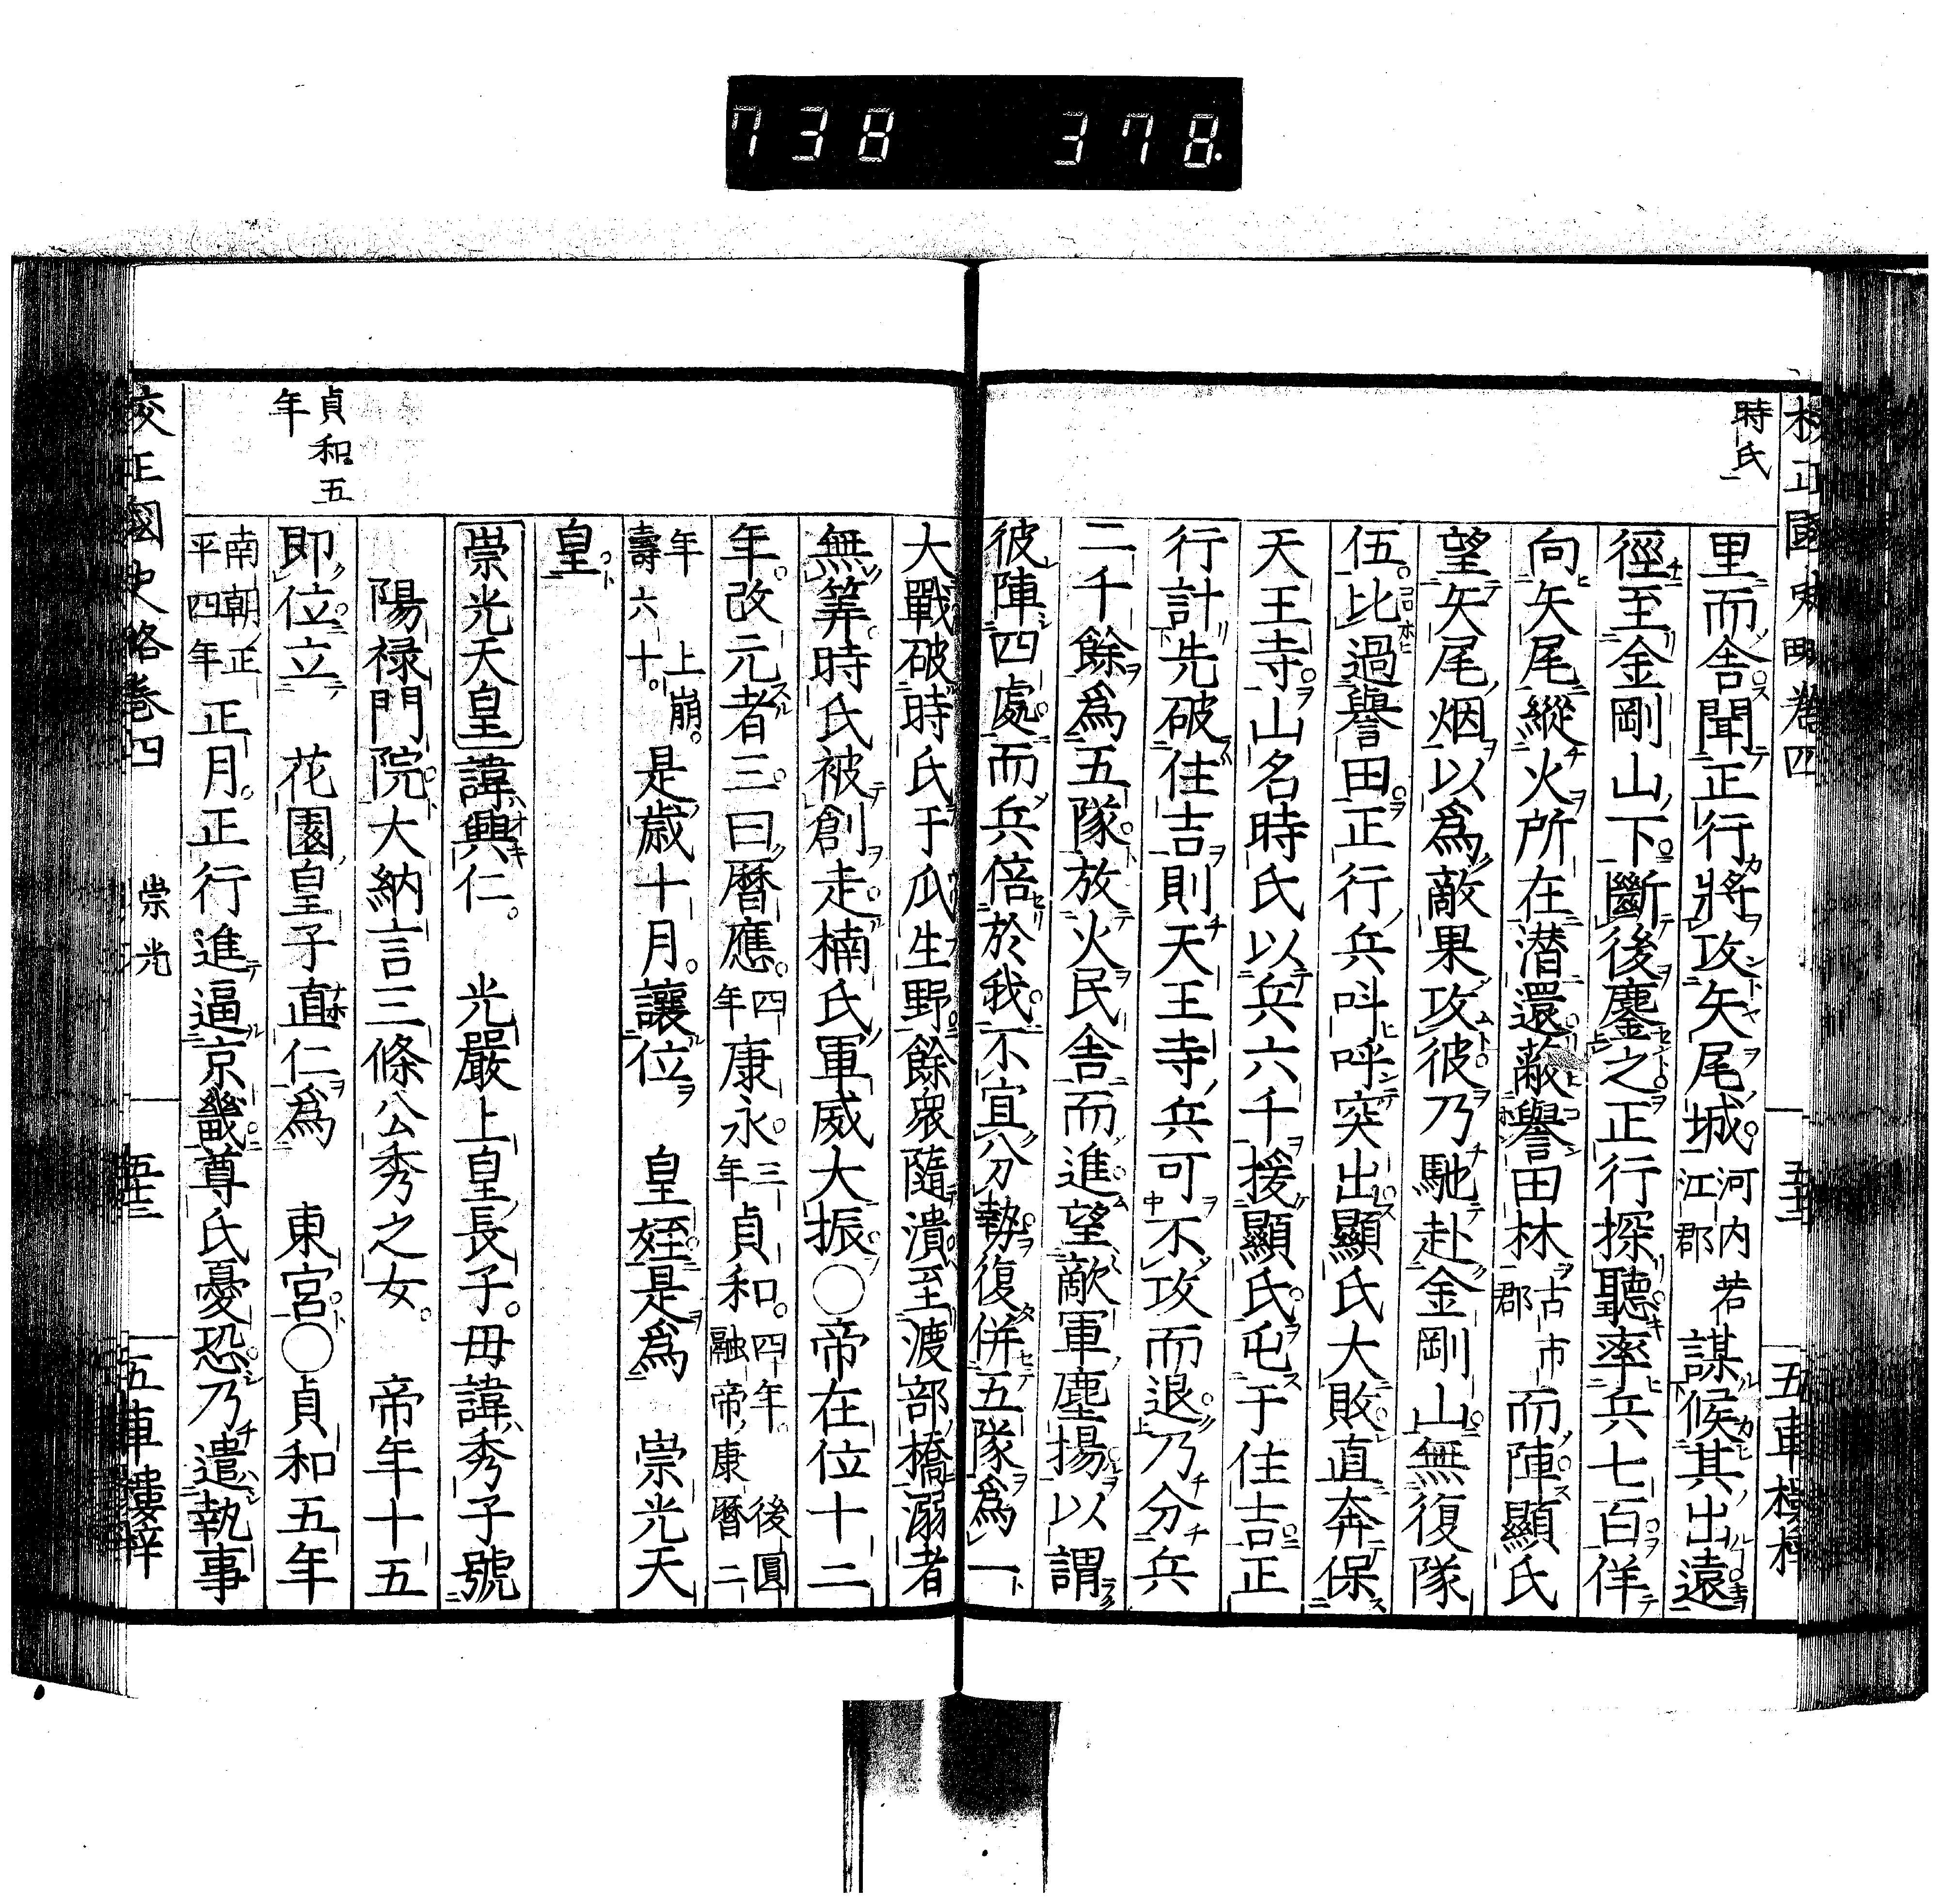 738 378.
校正國史略卷四
五車樓梓
時氏
里而舍聞正行將攻矢尾城河内若江郡謀候其出遠
徑至金剛山下斷後鏖之正行探聽率兵七百佯
向矢尾縱火所在潜還敵譽田林古市郡而陣顯氏
望矢尾烟以爲敵果攻彼乃馳赴金剛山無復隊
伍比過譽田正行兵呌呼突出顯氏大敗直奔保
天王寺山名時氏以兵六千援顯氏屯于住吉正
行計先破住吉則天王寺兵可不攻而退乃分兵
二千餘爲五隊放火民舍而進望敵軍塵揚以謂
彼陣四處而兵倍於我不宜分勢復併五隊爲一
大戰破時氏于瓜生野餘衆隨潰至渡部橋溺者
無筭時氏被創走楠氏軍威大振〇帝在位十二
年改元者三曰曆應四年康永三年貞和四年後圓融帝康曆二
年上崩壽六十是歳十月讓位皇姪是爲崇光天
皇
崇光天皇諱興仁光嚴上皇長子母諱秀子號
陽禄門院大納言三條公秀之女帝年十五
即位立花園皇子直仁爲東宮〇貞和五年
南朝正平四年正月正行進逼京畿尊氏憂恐乃遣執事
貞和五年
校正國史略卷四
崇光
五車樓梓